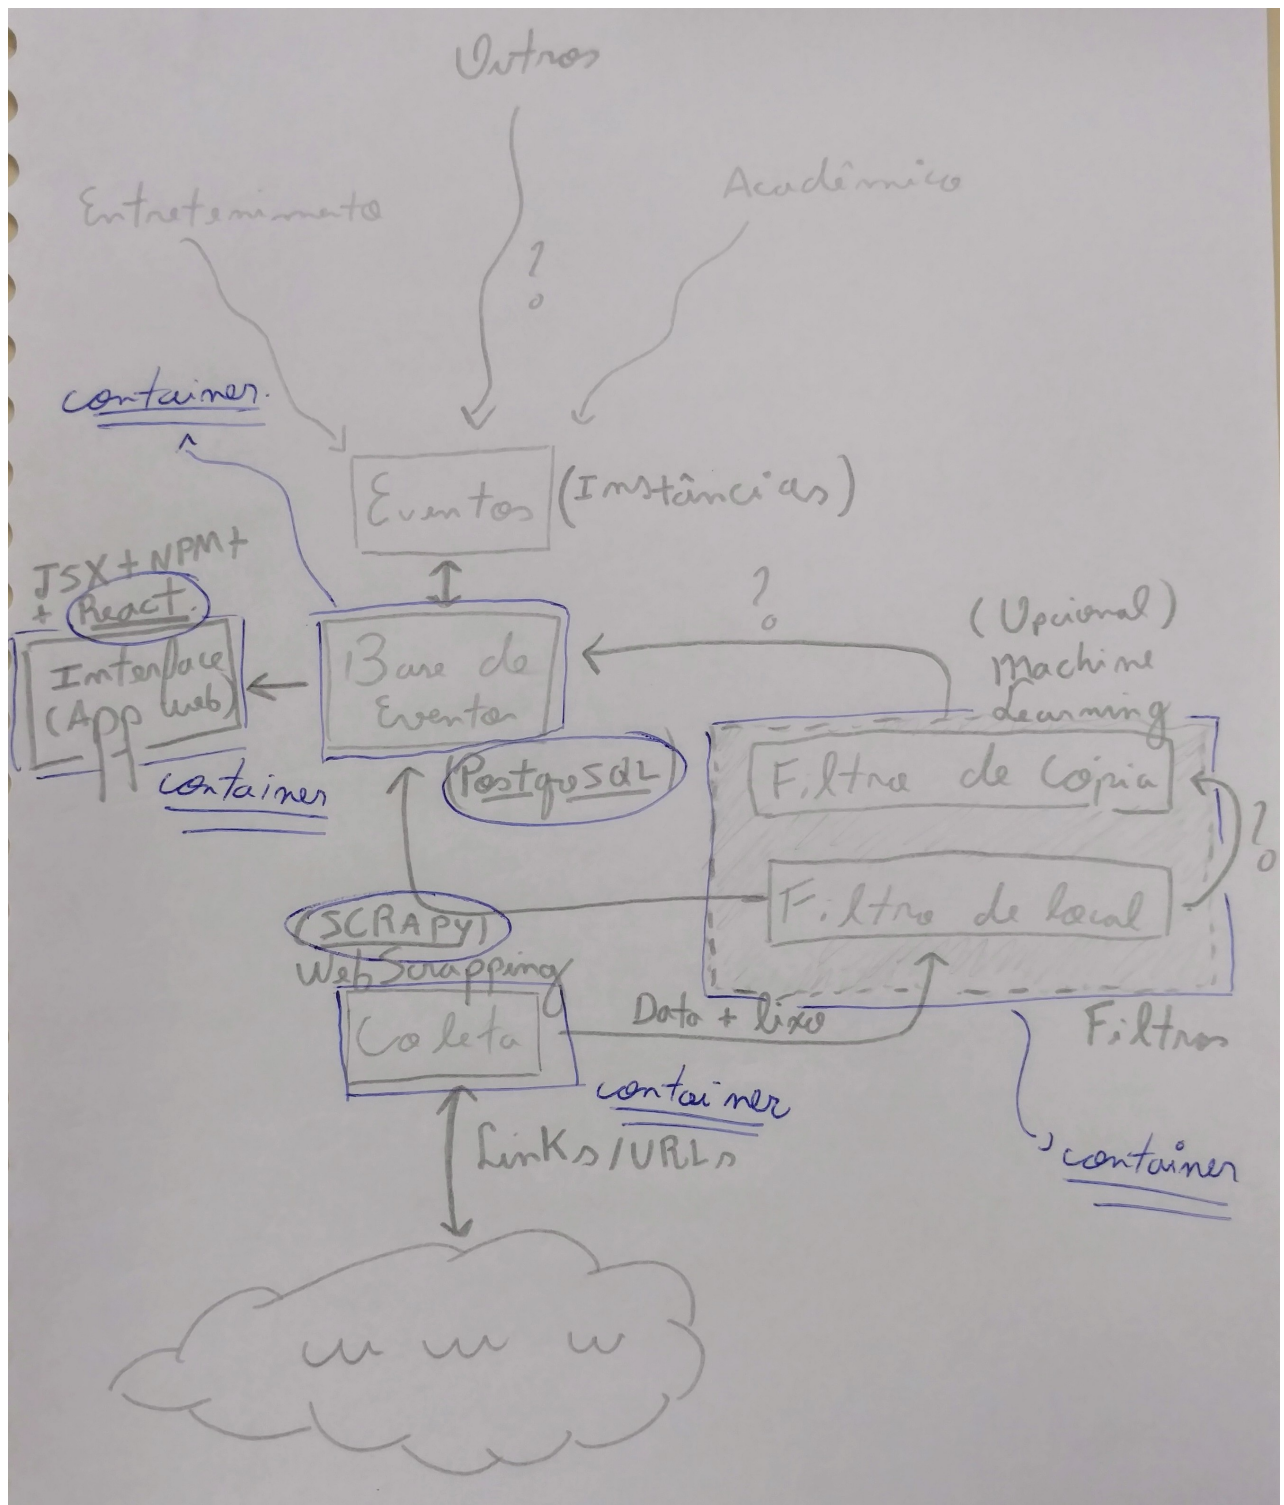 Outros
Entretenimento
Acadêmico
?
container.
Eventos
(Instâncias)
JSX + NPM +
+ React.
Interface
(App web)
container
Base de
Eventos
(PostgreSQL)
?
(Opcional)
Machine
Learning
Filtro de Cópia
Filtro de local
?
Filtros
container
(SCRAPY)
WebScrapping
Coleta
Data + lixo
container
Links/URLs
w w w